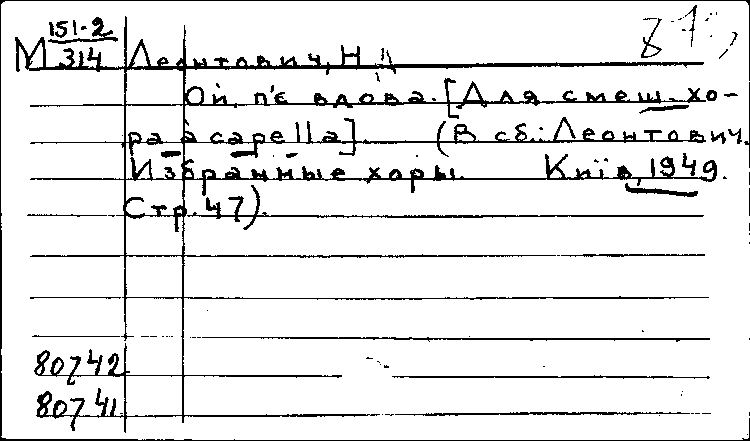 М 151-2
314
Леонтович, Н
Ой, п'є вдова. [Для смеш. хо-
ра a capella]. (В сб.: Леонтович.
Избранные хоры. Київ, 1949.
Стр. 47).
80742
80741